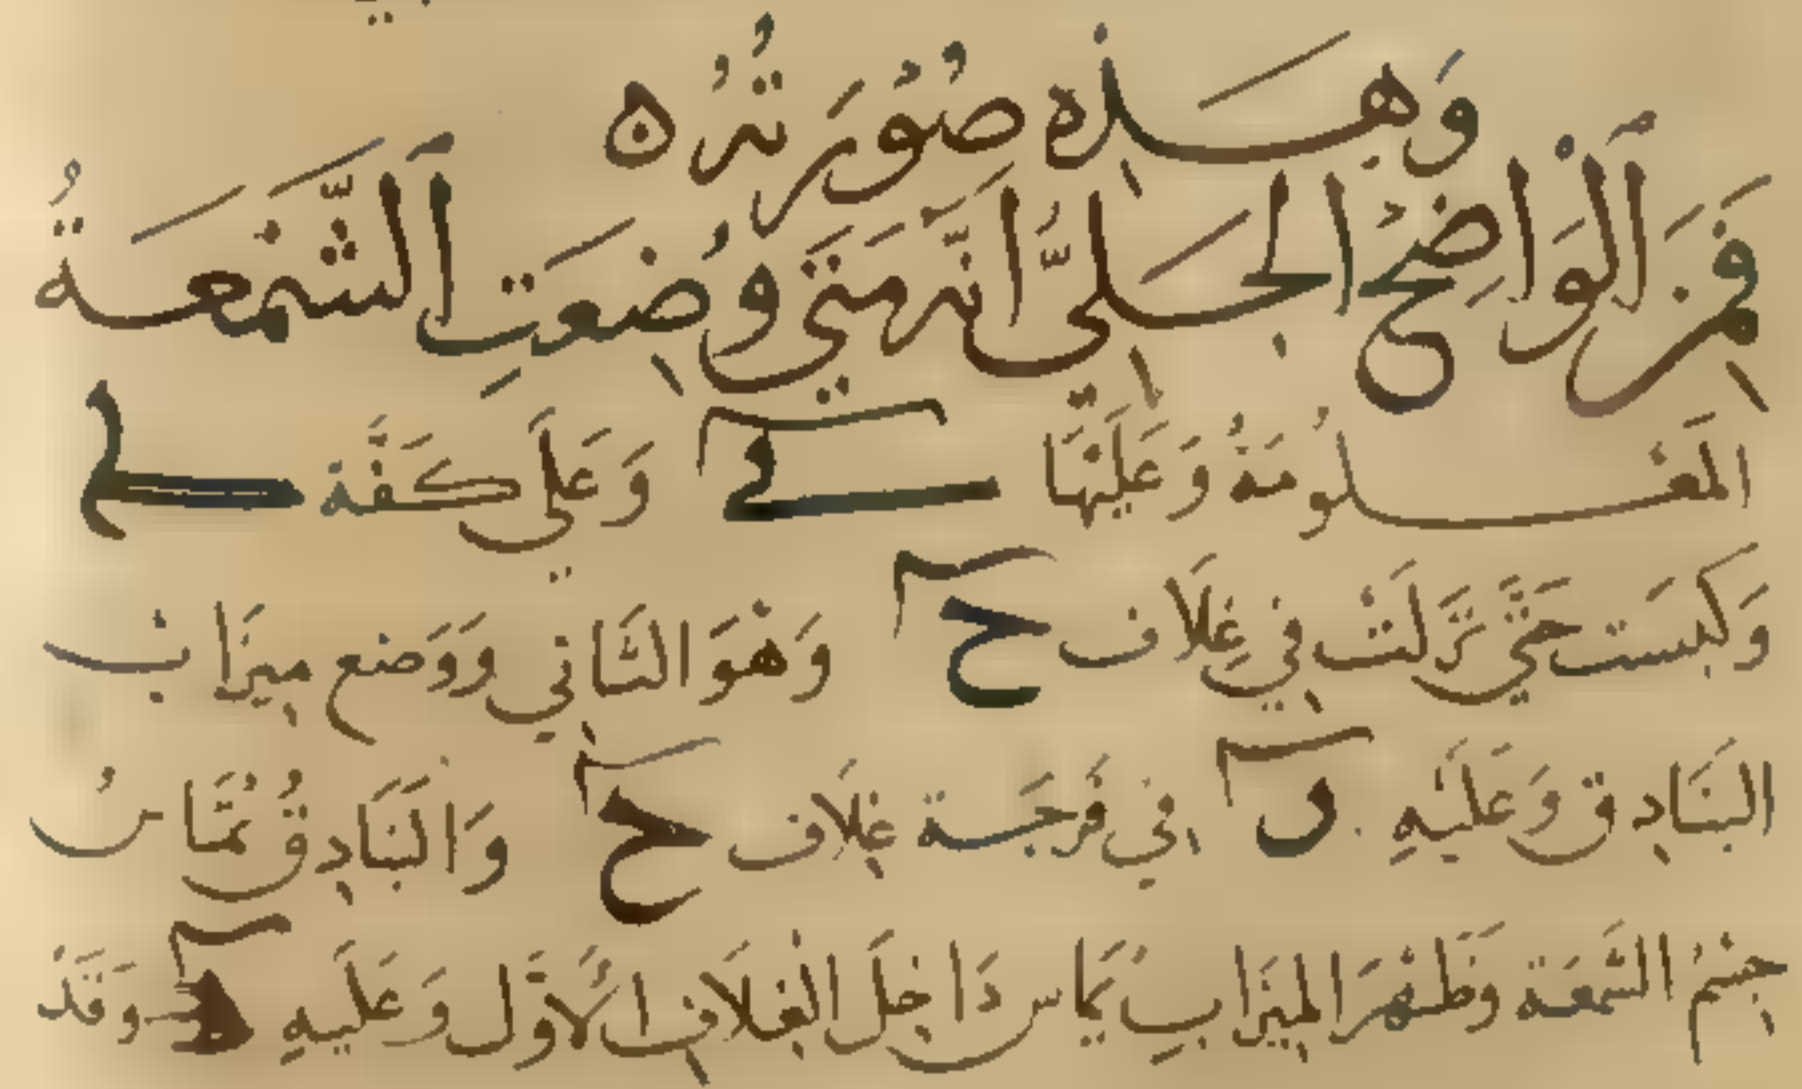 وَهَذِهِ صُوُرَتُهُ ه
فَمِنَ الْوَاضِحِ الْجَلِيِّ أَنَّهُ مَتَى وُضِعَتِ الشَّمْعَةُ
الْمَعْلُومَةُ وَعَلَيْهَا وَعَلَى كَفَّة
وَكُبِسَت حَتَّى نَزَلَتْ فِي غِلَاف ح وَهْوَ الثَّانِي وَوَضع مِيزَاب
البَنَادِق وَعَلَيْهِ في فَرجَة غِلَاف ح وَالبَنَادِقُ تُمَاسُ
جِسْمُ الشَّمْعَة وَظَهْرَ الْمِيزَابِ يُمَاس دَاخِلَ الْغِلَافِ الأَوَّل وَعَلَيهِ وَقَدْ